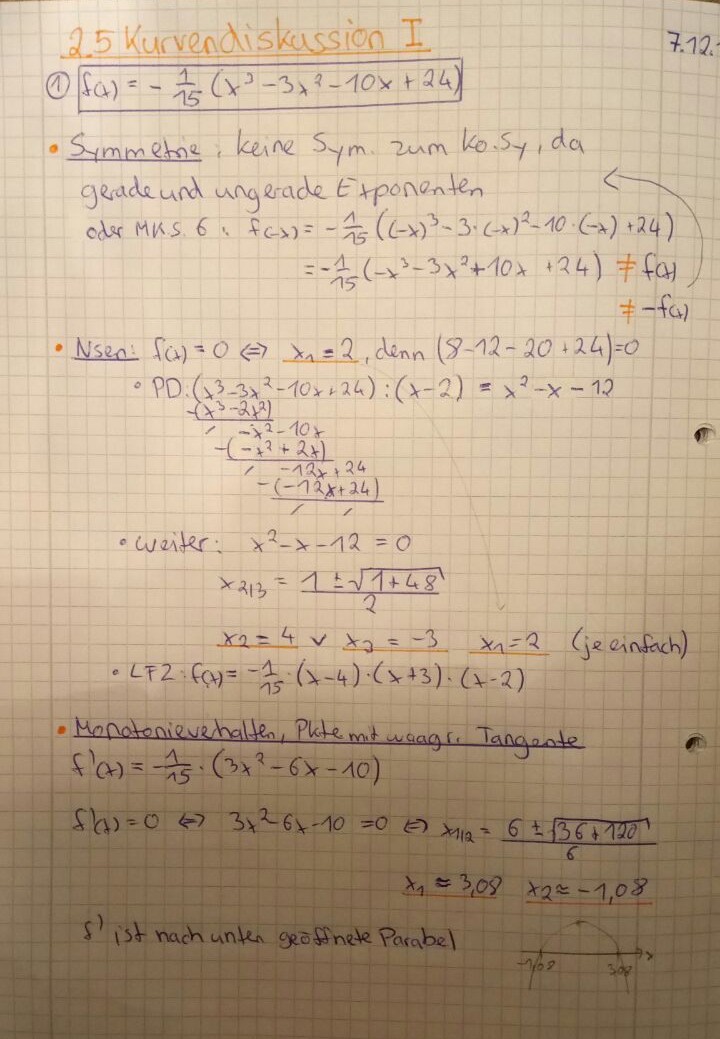 2.5 Kurvendiskussion I
7.12.
① f(x) = -1/15 (x³ - 3x² - 10x + 24)
• Symmetrie: keine Sym. zum Ko.Sy, da
gerade und ungerade Exponenten
oder MKS. 6: f(-x) = -1/15 ((-x)³ - 3·(-x)² - 10·(-x) + 24)
= -1/15 (-x³ - 3x² + 10x + 24) ≠ f(x)
≠ -f(x)
• Nsen: f(x) = 0 ⇔ x₁ = 2, denn (8-12-20+24)=0
• PD: (x³ - 3x² - 10x + 24) : (x-2) = x² - x - 12
-(x³ - 2x²)
/ -x² - 10x
-(-x² + 2x)
/ -12x + 24
-(-12x + 24)
/ /
• weiter: x² - x - 12 = 0
x₂/₃ = (1 ± √(1+48))/2
x₂ = 4 v x₃ = -3 x₁ = 2 (je einfach)
• LFZ: f(x) = -1/15·(x-4)·(x+3)·(x-2)
• Monotonieverhalten, Pkte mit waagr. Tangente
f'(x) = -1/15·(3x² - 6x - 10)
f'(x) = 0 ⇔ 3x² - 6x - 10 = 0 ⇔ x₁/₂ = (6 ± √(36+120))/6
x₁ ≈ 3,08 x₂ ≈ -1,08
f' ist nach unten geöffnete Parabel
-1,08 3,08 x